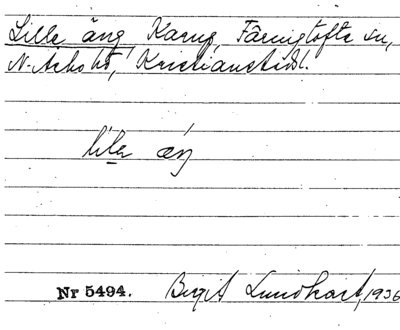 Lille äng, Karup, Färingtofte sn,
N. Åsbo hd, Kristianstads l.
lilə äŋ
Nr 5494. Birgit Lundkvist, 1936